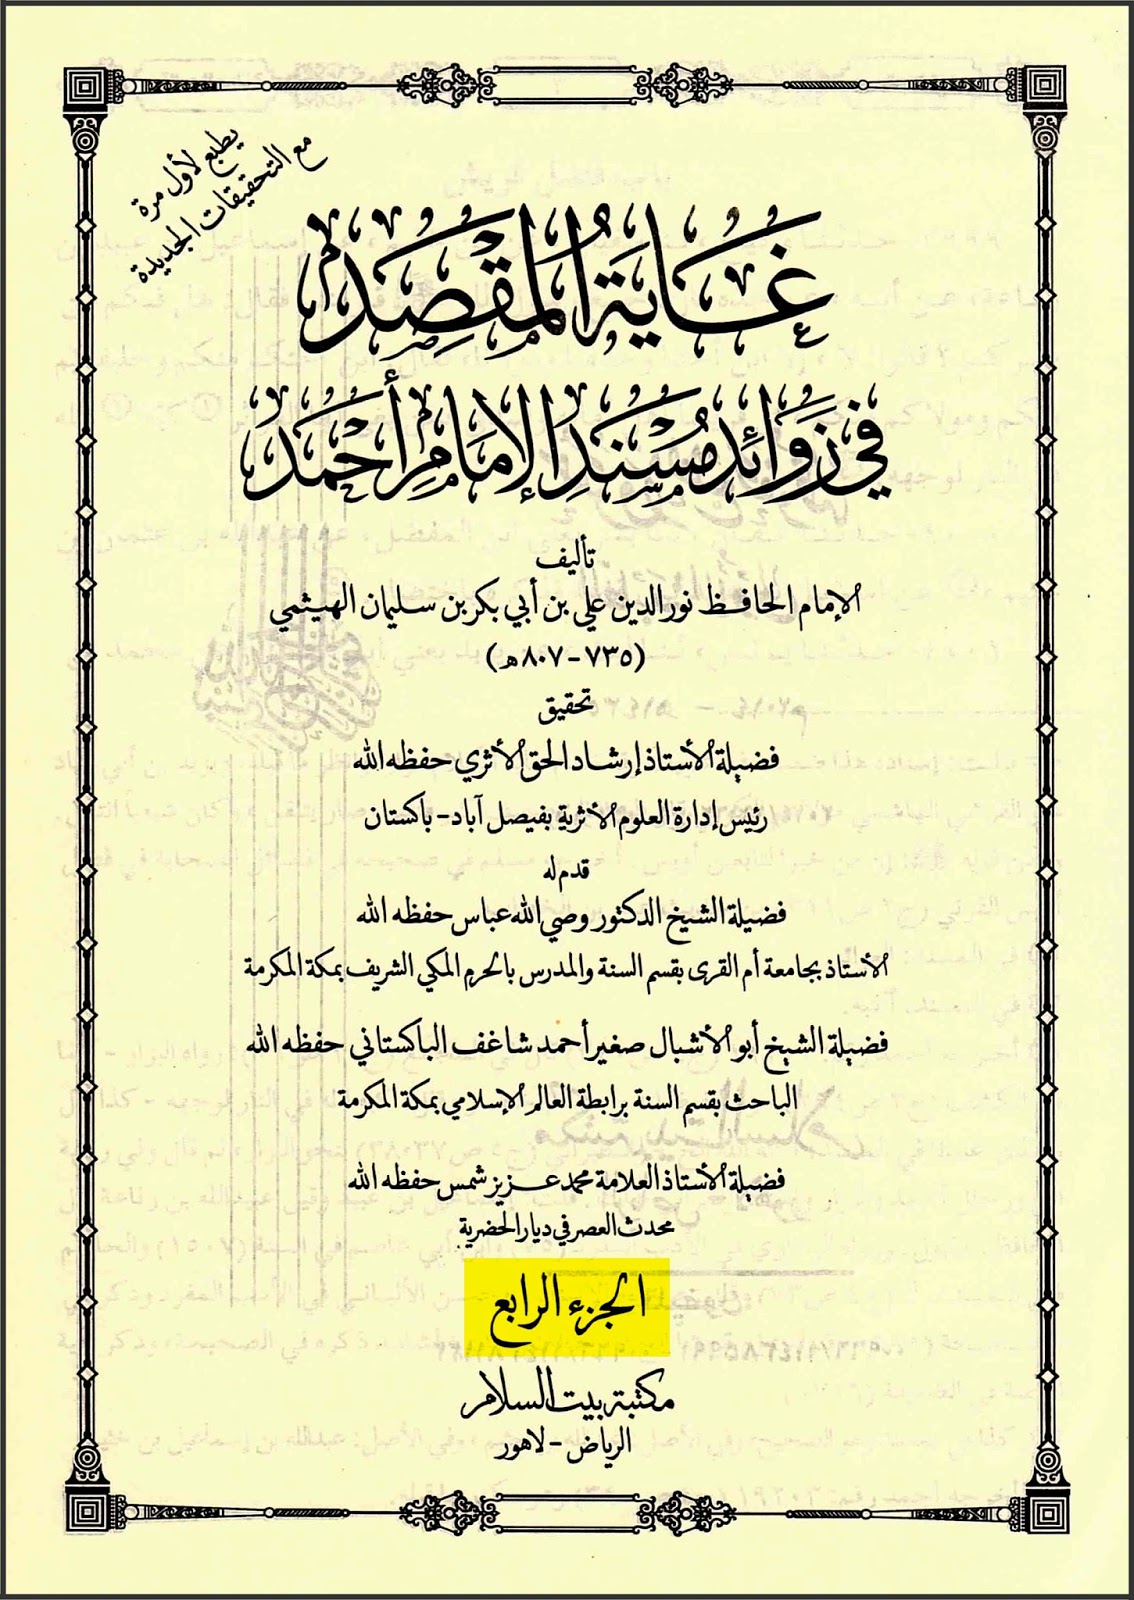 يطبع لأول مرة
مع التحقيقات الجديدة
غاية المقصد
في زوائد مسند الإمام أحمد
تأليف
الإمام الحافظ نور الدين علي بن أبي بكر بن سليمان الهيثمي
(٧٣٥-٨٠٧هـ)
تحقيق
فضيلة الأستاذ إرشاد الحق الأثري حفظه الله
رئيس إدارة العلوم الأثرية بفيصل آباد-باكستان
قدم له
فضيلة الشيخ الدكتور وصي الله عباس حفظه الله
الأستاذ بجامعة أم القرى بقسم السنة والمدرس بالحرم المكي الشريف بمكة المكرمة
فضيلة الشيخ أبو الأشبال صغير أحمد شاغف الباكستاني حفظه الله
الباحث بقسم السنة برابطة العالم الإسلامي بمكة المكرمة
فضيلة الأستاذ العلامة محمد عزيز شمس حفظه الله
محدث العصر في ديار الحضرية
الجزء الرابع
مكتبة بيت السلام
الرياض-لاهور